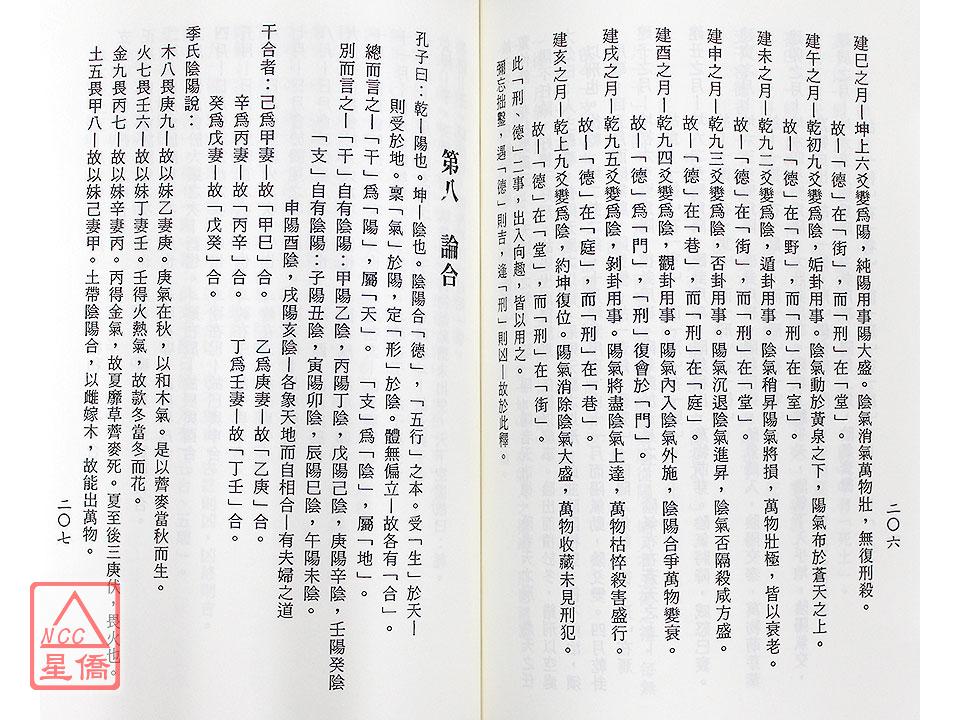 建巳之月—坤上六爻變爲陽，純陽用事陽大盛。陰氣消氣萬物壯，無復刑殺。
故—「德」在「街」，而「刑」在「堂」。
建午之月—乾初九爻變爲陰，姤卦用事。陰氣動於黃泉之下，陽氣布於蒼天之上。
故—「德」在「野」，而「刑」在「室」。
建未之月—乾九二爻變爲陰，遁卦用事。陰氣稍昇陽氣將損，萬物壯極，皆以衰老。
故—「德」在「街」，而「刑」在「堂」。
建申之月—乾九三爻變爲陰，否卦用事。陽氣沉退陰氣進昇，陰氣否隔殺咸方盛。
故—「德」在「巷」，而「刑」在「庭」。
建酉之月—乾九四爻變爲陰，觀卦用事。陽氣內入陰氣外施，陰陽合爭萬物變衰。
故—「德」爲「門」，「刑」復會於「門」。
建戌之月—乾九五爻變爲陰，剝卦用事。陽氣將盡陰氣上達，萬物枯悴殺害盛行。
故—「德」在「庭」，而「刑」在「巷」。
建亥之月—乾上九爻變爲陰，約坤復位。陽氣消除陰氣大盛，萬物收藏未見刑犯。
故—「德」在「堂」，而「刑」在「街」。
此「刑、德」二事，出入向趣，皆以用之。
彌忘拙鑿，遇「德」則吉，逢「刑」則凶—故於此釋。
二〇六
第八 論合
孔子曰：乾—陽也。坤—陰也。陰陽合「德」，「五行」之本。受「生」於天—
則受於地。稟「氣」於陽，定「形」於陰。體無偏立—故各有「合」。
總而言之—「干」爲「陽」，屬「天」。 「支」爲「陰」，屬「地」。
別而言之—「干」自有陰陽：甲陽乙陰，丙陽丁陰，戊陽己陰，庚陽辛陰，壬陽癸陰
「支」自有陰陽：子陽丑陰，寅陽卯陰，辰陽巳陰，午陽未陰。
申陽酉陰，戌陽亥陰—各象天地而自相合—有夫婦之道
干合者：己爲甲妻—故「甲巳」合。 乙爲庚妻—故「乙庚」合。
辛爲丙妻—故「丙辛」合。 丁爲壬妻—故「丁壬」合。
癸爲戊妻—故「戊癸」合。
季氏陰陽說：
木八畏庚九—故以妹乙妻庚。庚氣在秋，以和木氣。是以薺麥當秋而生。
火七畏壬六—故以妹丁妻壬。壬得火熱氣，故款冬當冬而花。
金九畏丙七—故以妹辛妻丙。丙得金氣，故夏靡草薺麥死。夏至後三庚伏，畏火也。
土五畏甲八—故以妹己妻甲。土帶陰陽合，以雌嫁木，故能出萬物。
二〇七
NCC
星僑